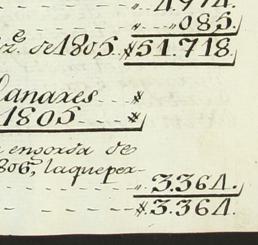 4.974.
.. 085.
de 1805. $51.718.
anaxes - - $
1805 - - - $
engorda de
806, la qe. per-
- - - - 3.364.
- - - - $3.364.